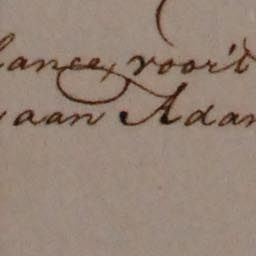 lance, voor't
aan Adam